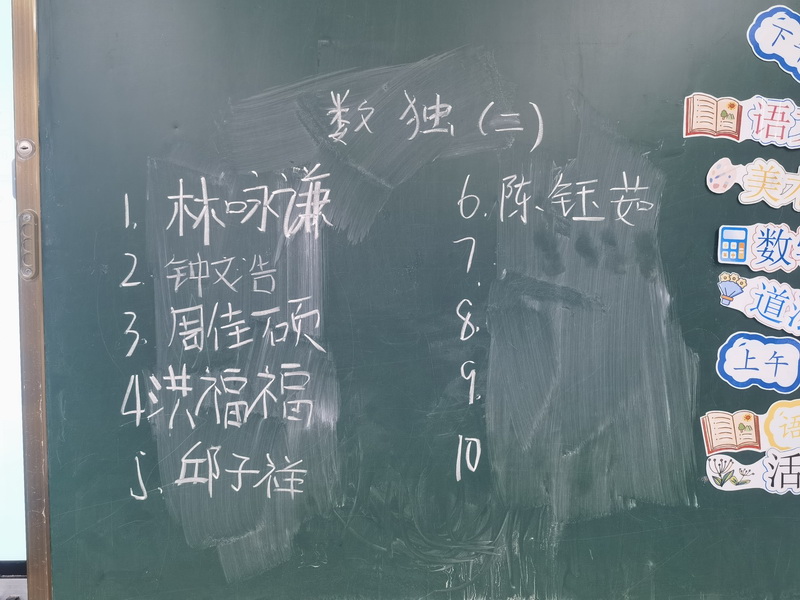 数独(二)
1. 林咏谦
2. 钟文浩
3. 周佳硕
4 洪福福
5. 邱子祥
6. 陈钰茹
7.
8.
9.
10
下午
语文
美术
数学
道法
上午
语
活